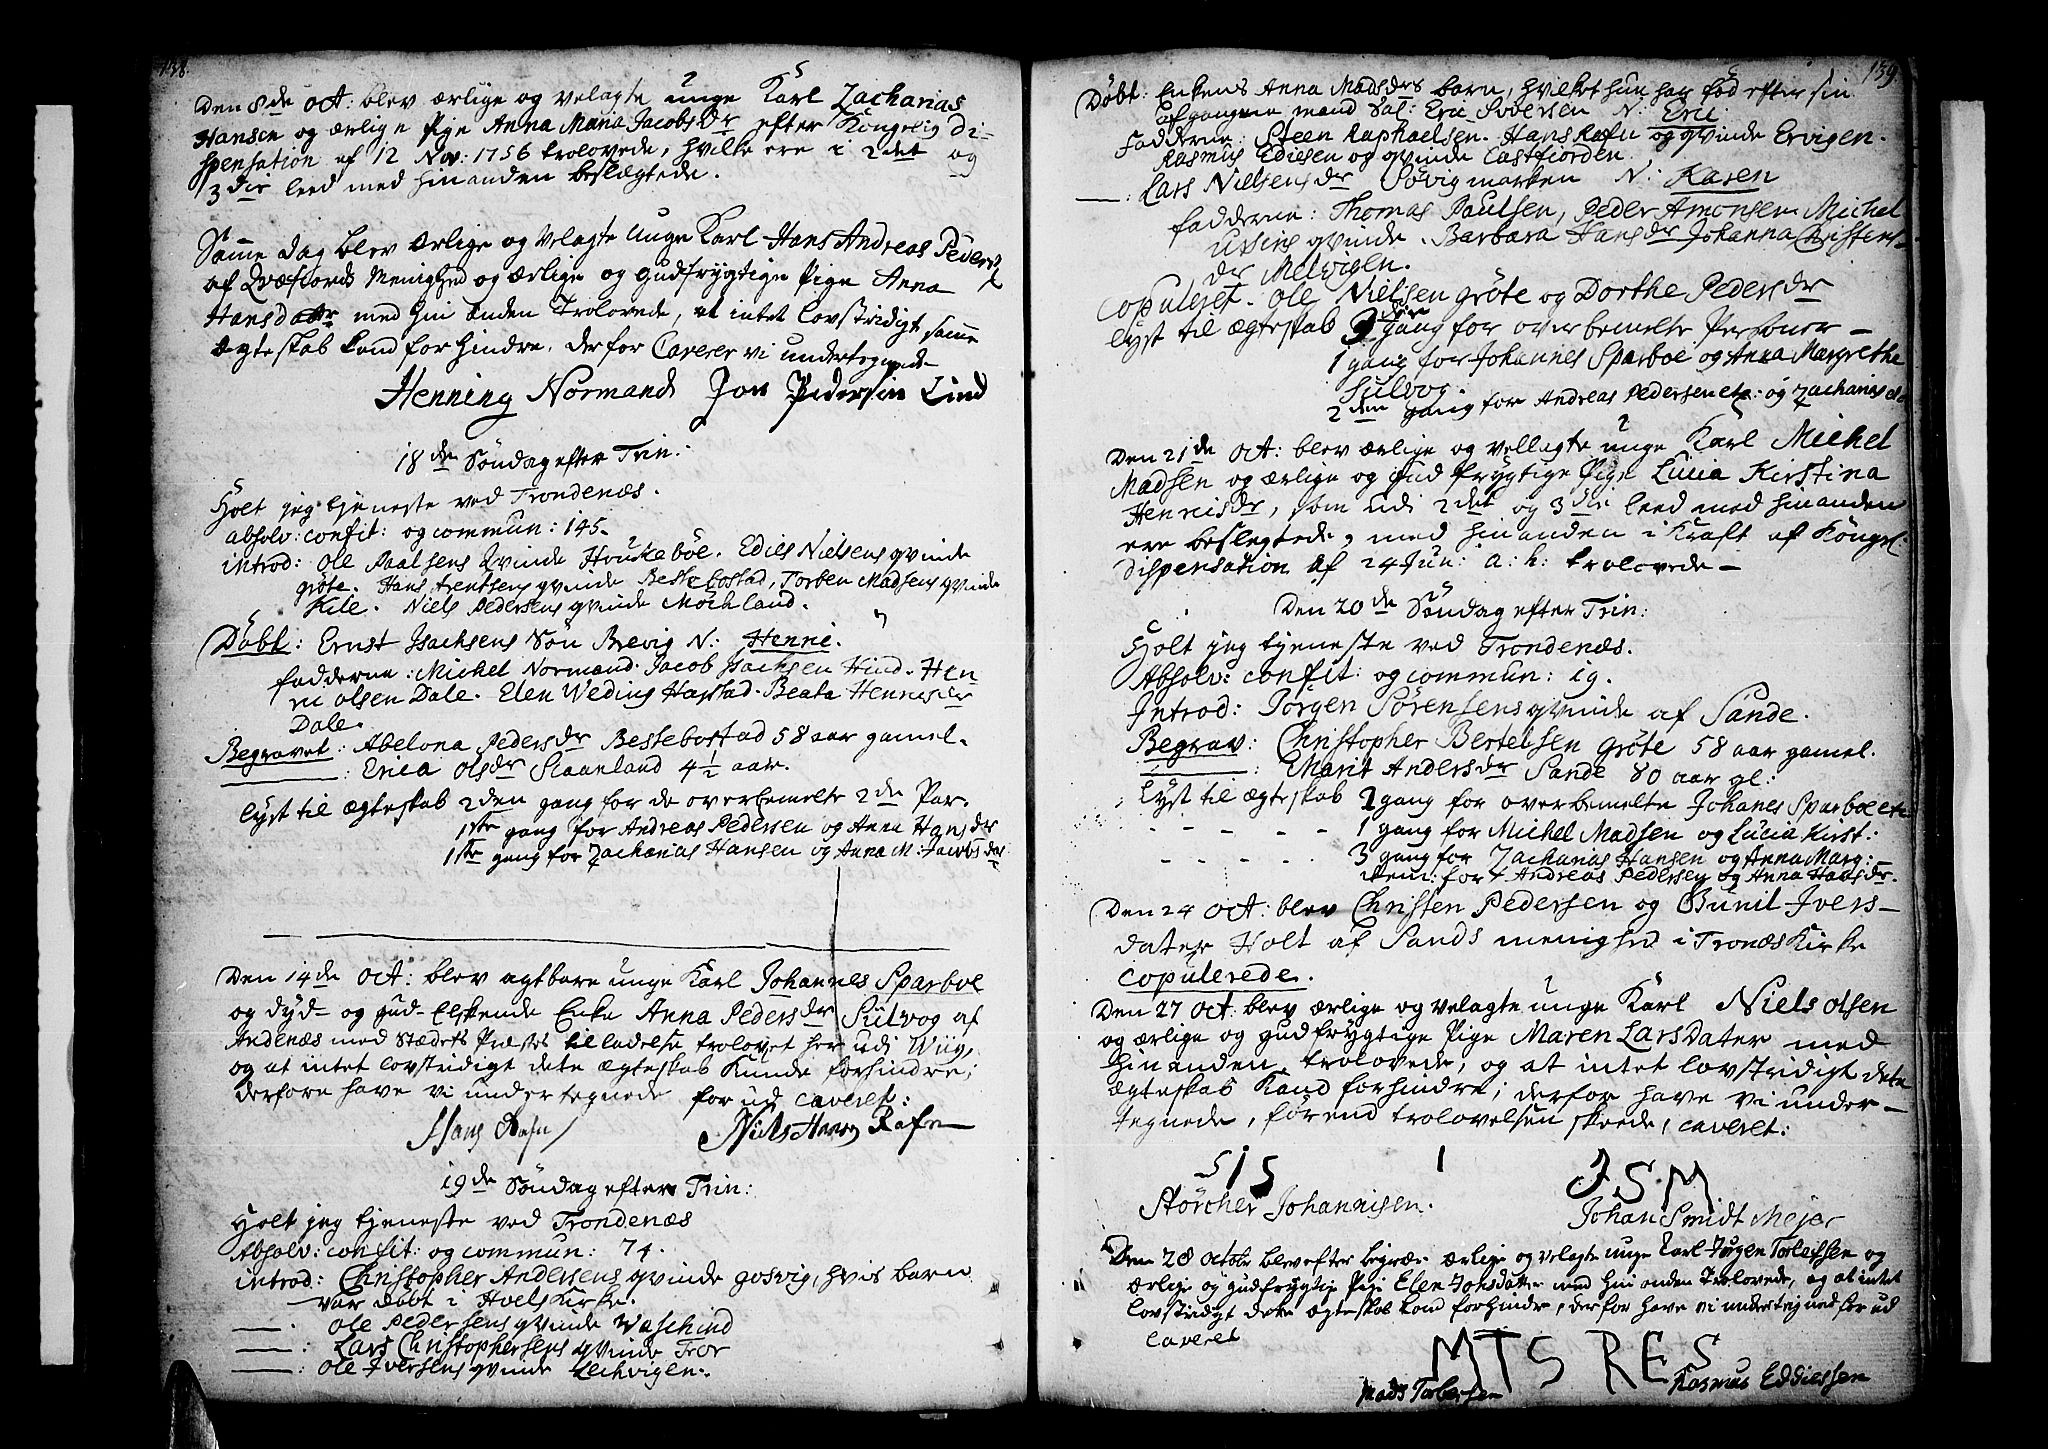 138.
Den 8de Oct: blev ærlige og velagte unge Karl Zacharias
Hansen og ærlige Pige Anna Maria Jacobsdr efter Kongelig Di-
spensation af 12 Nov: 1756 trolovede, hvilke ere i 2det og
3die leed med hinanden beslægtede.
Samme Dag blev Ærlige og Velagte Unge Karl Hans Andreas Peders:
af Qvæfiords Menighed og Ærlige og Gudfrygtige Pige Anna
Hansdatr med hin anden Trolovede, at intet lovstridigt samme
Ægteskab kand forhindre, derfor Caverer vi undertegnede
Henning Normand Jon Pedersen Lind
18de Søndag efter Trin:
Holt jeg tjeneste ved Trondenæs.
absolv: confit: og commun: 145.
introd: Ole Paalsens Qvinde Houkebøe. Edies Nielsens qvinde
grøte. Hans Arentsens qvinde Bestebostad, Torben Madsens qvinde
Kile. Niels Pedersens qvinde Møchland.
Døbt: Ernst Isachsens Søn Brevig N: Henric.
fadderne: Michel Normand. Jacob Isachsen Kind. Hen-
ric Olsen Dale. Elen Weding Harstad. Beata Henricsdr
Dale.
Begravet: Abelona Pedersdr Bestebostad 58 aar gamel.
: Erica Olsdr Slaanland 4 1/2 aar.
Lyst til Ægteskab 2den gang for de overbemelte 2de Par.
1ste gang for Andreas Pedersen og Anna Hansdr
1ste gang for Zacharias Hansen og Anna M: Jacobsdr
Den 14de Oct: blev agtbare unge Karl Johannes Sparboe
og dyd- og gud-Elskende Enke Anna Pedersdr Sulvog af
Andenæs med Stædets Præstes tilladelse trolovet her udi Wiig,
og at intet lovstridigt dete Ægteskab Kunde forhindre;
derfore have vi undertegnede for ud caveret:
Hans Rafn Niels Hansen Rafn
19de Søndag efter Trin:
Holt jeg tjeneste ved Trondenæs
Absolv: confit: og commun: 74.
introd: Christopher Andersens qvinde gosvig, hvis barn
var døbt i Hols Kirke.
Ole Pedersens qvinde Waschind
: Lars Christophersens qvinde Tror
: Ole Iversens qvinde Lechvigen.
139.
Døbt: Enkens Anna Madsdrs barn, hvilket hun har fød efter sin
afgangne mand Sal: Eric Siversen N: Eric
Fadderne: Steen Raphaelsen. Hans Rafn og qvinde Ervigen.
Rasmus Ediesen og qvinde Castfiorden.
: Lars Nielsens dr Søvigmarken N: Karen
fadderne: Thomas Paulsen, Peder Amonsen, Michel
Ussins qvinde. Barbara Hansdr Johanna Christens-
dr Melvigen.
Copuleret. Ole Nielsen grøte og Dorthe Pedersdr
lyst til ægteskab 3die gang for overbemelte Personer -
1 gang for Johannes Sparboe og Anna Margretha
Sulvog.
2den gang for Andreas Pedersen etc: og Zacharias etc
Den 21de Oct: blev ærlige og vellagte unge Karl Michel
Madsen og ærlige og Gud frygtige Pige Lucia Kirstina
Henricsdr, som udi 2det og 3die leed med hinanden
ere beslegtede, med hinanden i Kraft af Kongel:
Dispensation af 24 Jun: a: h: trolovede -
Den 20de Søndag efter Trin:
Holt jeg tjeneste ved Trondenæs.
Absolv: confit: og commun: 19.
Introd: Jørgen Sørensens qvinde af Sande.
Begrav: Christopher Bertelsen Grøte 58 aar gamel.
: Marit Andersdr Sande 80 aar gl:
Lyst til ægteskab 2 gang for overbemelte Johanes Sparboe etc
- - - - - 1 gang for Michel Madsen og Lucia Kirst:
- - - - - 3 gang for Zacharias Hansen og Anna Marg:
item: for Andreas Pedersen og Anna Hansdr.
Den 24 Oct: blev Christen Pedersen og Gunil Ivers-
dater Holt af Sands menighed i Tronæs Kirke
copulerede.
Den 27 Oct: blev ærlige og velagte unge Karl Niels Olsen
og ærlige og gudfrygtige Pige Maren Larsdater med
hinanden trolovede, og at intet lovstridigt dete
ægteskab Kand forhindre; derfor have vi under-
tegnede, førend trolovelsen skeede, caveret:
SIS JSM
Størcher Johannisen. Johan Smidt Mejer
Den 28 Octobr blev efter begræ: ærlige og velagte unge Karl Jørgen Torleifsen og
ærlige og gudfrygtig Pige Elen Jonsdatter med hin anden Trolovede, og at intet
lovstridigt dete ægteskab kand forhindre, derfor have vi undertegned for ud
Caveret
MTS RES
Mads Torbersen Rasmus Eddiessen